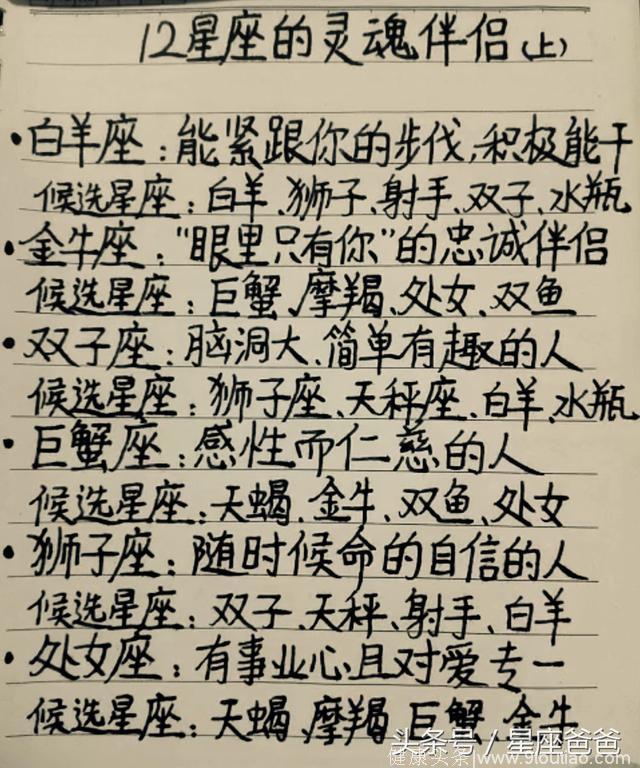 12星座的灵魂伴侣(上)
•白羊座：能紧跟你的步伐,积极能干
候选星座：白羊、狮子、射手、双子、水瓶
•金牛座："眼里只有你"的忠诚伴侣
候选星座：巨蟹、摩羯、处女、双鱼
•双子座：脑洞大、简单有趣的人
候选星座：狮子座、天秤座、白羊、水瓶
•巨蟹座：感性而仁慈的人
候选星座：天蝎、金牛、双鱼、处女
•狮子座：随时候命的自信的人
候选星座：双子、天秤、射手、白羊
•处女座：有事业心、且对爱专一
候选星座：天蝎、摩羯、巨蟹、金牛
头条号／星座爸爸
健康头条 www.9louliao.com